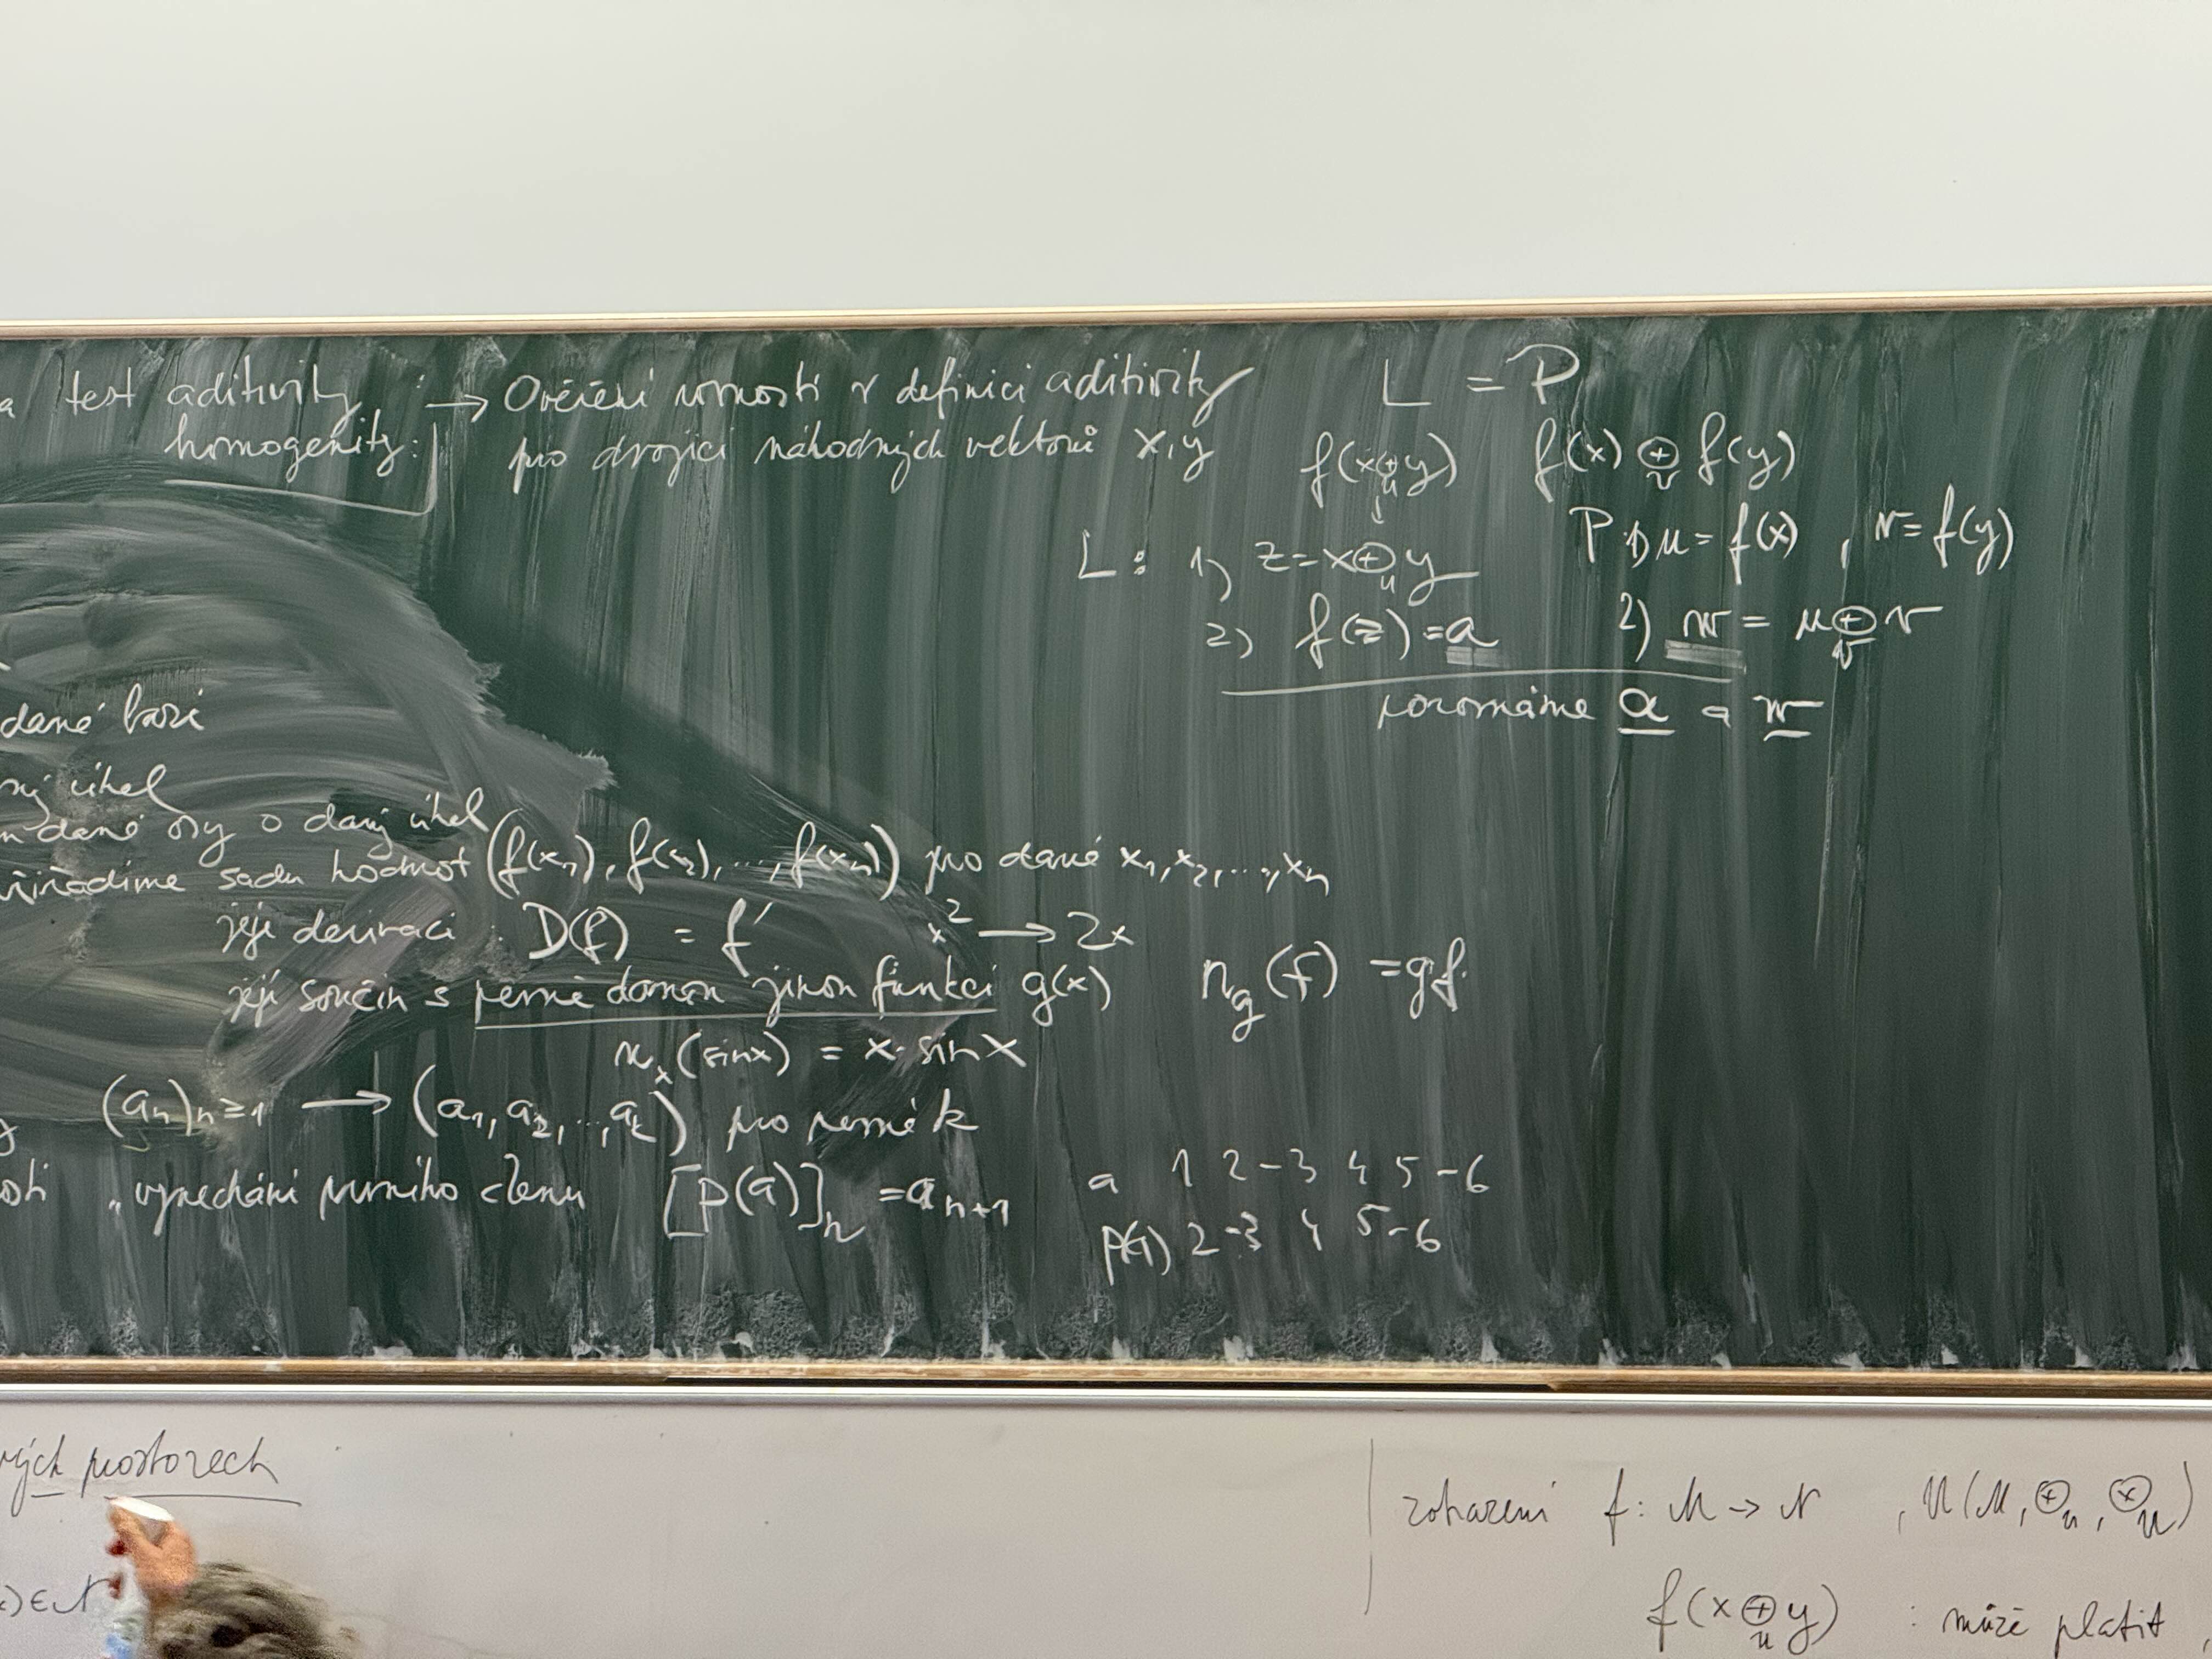 a test aditivity :
homogenity:
→ Ověření rovnosti v definici aditivity
pro dvojici náhodných vektorů x,y
L = P
f(x⊕y) f(x) ⊕ f(y)
u v
L: 1) z = x⊕y
u
2) f(z) = a
P: 1) u = f(x) , v = f(y)
2) w = u⊕v
v
porovnáme a a w
dané bázi
ný úhel
dané osy o daný úhel
přiřadíme sadu hodnot (f(x₁), f(x₂), ..., f(xₙ)) pro dané x₁, x₂, ..., xₙ
její derivaci : D(f) = f′ x² → 2x
její součin s pevně danou jinou funkcí g(x) n_g(f) = gf
n_x(sinx) = x·sinx
(aₙ)ₙ≥₁ → (a₁, a₂, ..., aₖ) pro pevné k
osti „vynechání prvního členu [p(a)]ₙ = aₙ₊₁
a 1 2 -3 4 5 -6
p(a) 2 -3 4 5 -6
ých prostorech
) ∈ N
zobrazení f: M → N , U(M, ⊕ᵤ, ⊗ᵤ)
f(x⊕y) : může platit,
u